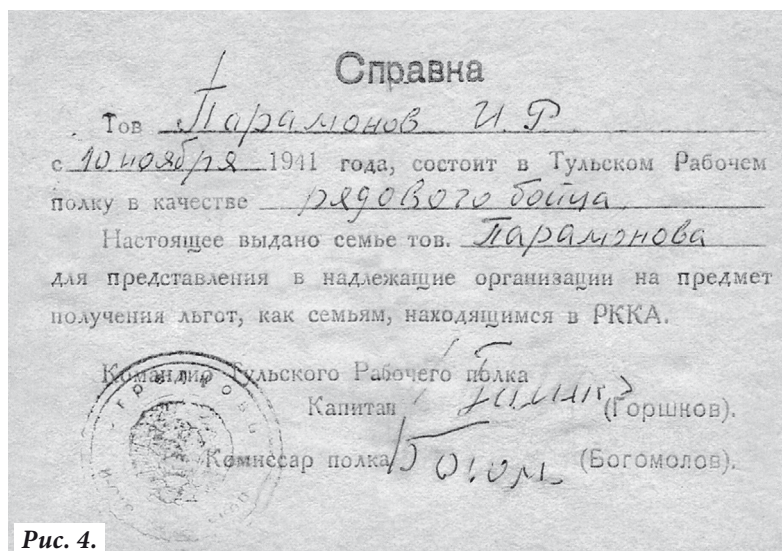 Справка
Тов Парамонов И. Р.
с 10 ноября 1941 года, состоит в Тульском Рабочем
полку в качестве рядового бойца.
Настоящее выдано семье тов. Парамонова
для представления в надлежащие организации на предмет
получения льгот, как семьям, находящимся в РККА.
Командир Тульского Рабочего полка
Капитан (Горшков).
Комиссар полка Богом (Богомолов).
Рис. 4.